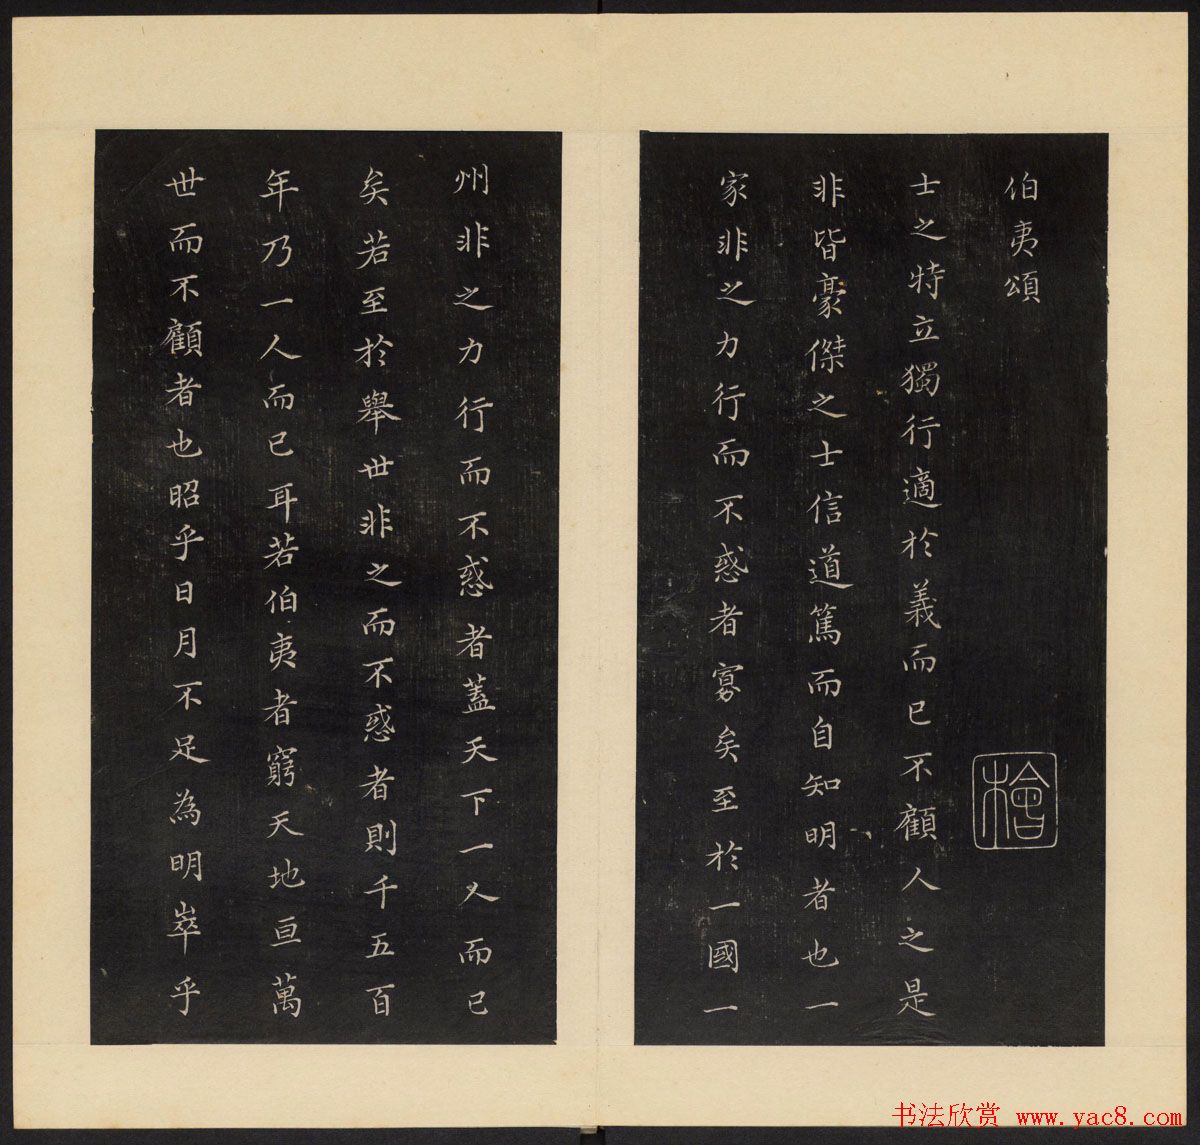 伯夷頌
士之特立獨行適於義而已不顧人之是
非皆豪傑之士信道篤而自知明者也一
家非之力行而不惑者寡矣至於一國一
州非之力行而不惑者蓋天下一人而已
矣若至於舉世非之而不惑者則千五百
年乃一人而已耳若伯夷者窮天地亘萬
世而不顧者也昭乎日月不足為明崒乎
檜
书法欣赏 www.yac8.com